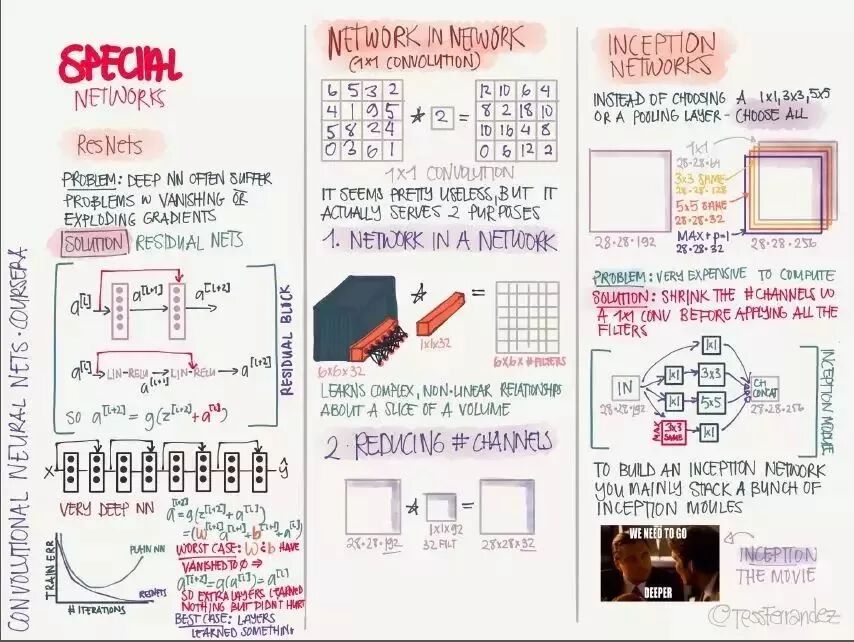 CONVOLUTIONAL NEURAL NETS · COURSERA
SPECIAL
NETWORKS
ResNets
PROBLEM: DEEP NN OFTEN SUFFER
PROBLEMS W VANISHING OR
EXPLODING GRADIENTS
SOLUTION RESIDUAL NETS
a[l] a[l+1] a[l+2]
a[l] LIN-RELU LIN-RELU a[l+2]
a[l+1]
SO a[l+2] = g(z[l+2] + a[l])
RESIDUAL BLOCK
X ŷ
VERY DEEP NN
a[l+2] = g(z[l+2] + a[l])
= (W[l+2] a[l+1] + b[l+2] + a[l])
WORST CASE: W & b HAVE
VANISHED TO Ø ⇒
a[l+2] = g(a[l]) = a[l]
SO EXTRA LAYERS LEARNED
NOTHING BUT DIDN'T HURT
BEST CASE: LAYERS
LEARNED SOMETHING
TRAIN ERR
PLAIN NN
RESNETS
# ITERATIONS
NETWORK IN NETWORK
(1x1 CONVOLUTION)
6 5 3 2
4 1 9 5
5 8 2 4
0 3 6 1
* 2 =
12 10 6 4
8 2 18 10
10 16 4 8
0 6 12 2
1x1 CONVOLUTION
IT SEEMS PRETTY USELESS, BUT IT
ACTUALLY SERVES 2 PURPOSES
1. NETWORK IN A NETWORK
* =
6x6x32 1x1x32 6x6x# FILTERS
LEARNS COMPLEX, NON-LINEAR RELATIONSHIPS
ABOUT A SLICE OF A VOLUME
2. REDUCING # CHANNELS
* =
28·28·192 1x1x192 28x28x32
32 FILT
INCEPTION
NETWORKS
INSTEAD OF CHOOSING A 1x1, 3x3, 5x5
OR A POOLING LAYER - CHOOSE ALL
1x1
28·28·64
3x3 SAME
28·28·128
5x5 SAME
28·28·32
MAX + p=1
28·28·32
28·28·192 28·28·256
PROBLEM: VERY EXPENSIVE TO COMPUTE
SOLUTION: SHRINK THE # CHANNELS W
A 1x1 CONV BEFORE APPLYING ALL THE
FILTERS
IN
28·28·192
1x1
1x1 3x3
1x1 5x5
MAX 3x3 SAME 1x1
CH CONCAT
28·28·256
INCEPTION MODULE
TO BUILD AN INCEPTION NETWORK
YOU MAINLY STACK A BUNCH OF
INCEPTION MOULES
WE NEED TO GO
DEEPER
INCEPTION
THE MOVIE
@TessFerrandez